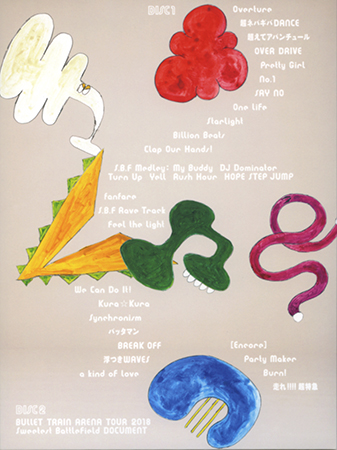 DISC1
Overture
超ネバギバDANCE
超えてアバンチュール
OVER DRIVE
Pretty Girl
No.1
SAY NO
One life
Starlight
Billion Beats
Clap Your Hands!
S.B.F Medley: My Buddy DJ Dominator
Turn Up Yell Rush Hour HOPE STEP JUMP
fanfare
S.B.F Rave Track
Feel the light
We Can Do It!
Kura☆Kura
Synchronism
バッタマン
BREAK OFF
傷つきWAVES
a kind of love
[Encore]
Party Maker
Burn!
走れ!!!! 超特急
DISC2
BULLET TRAIN ARENA TOUR 2018
Sweetest Battlefield DOCUMENT